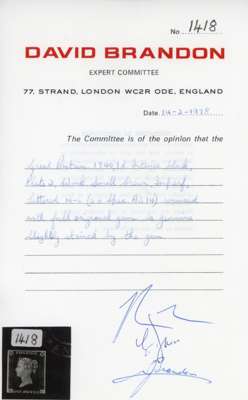 No. 1418
DAVID BRANDON
EXPERT COMMITTEE
77, STRAND, LONDON WC2R ODE, ENGLAND
Date 14-2-1978
The Committee is of the opinion that the
Great Britain 1840 1d Intense Black,
Plate 2, Wmk Small Crown, Imperf,
lettered (S.G. Spec AS14) unused
with full original gum is genuine
slightly stained by the gum
Brandon
1418